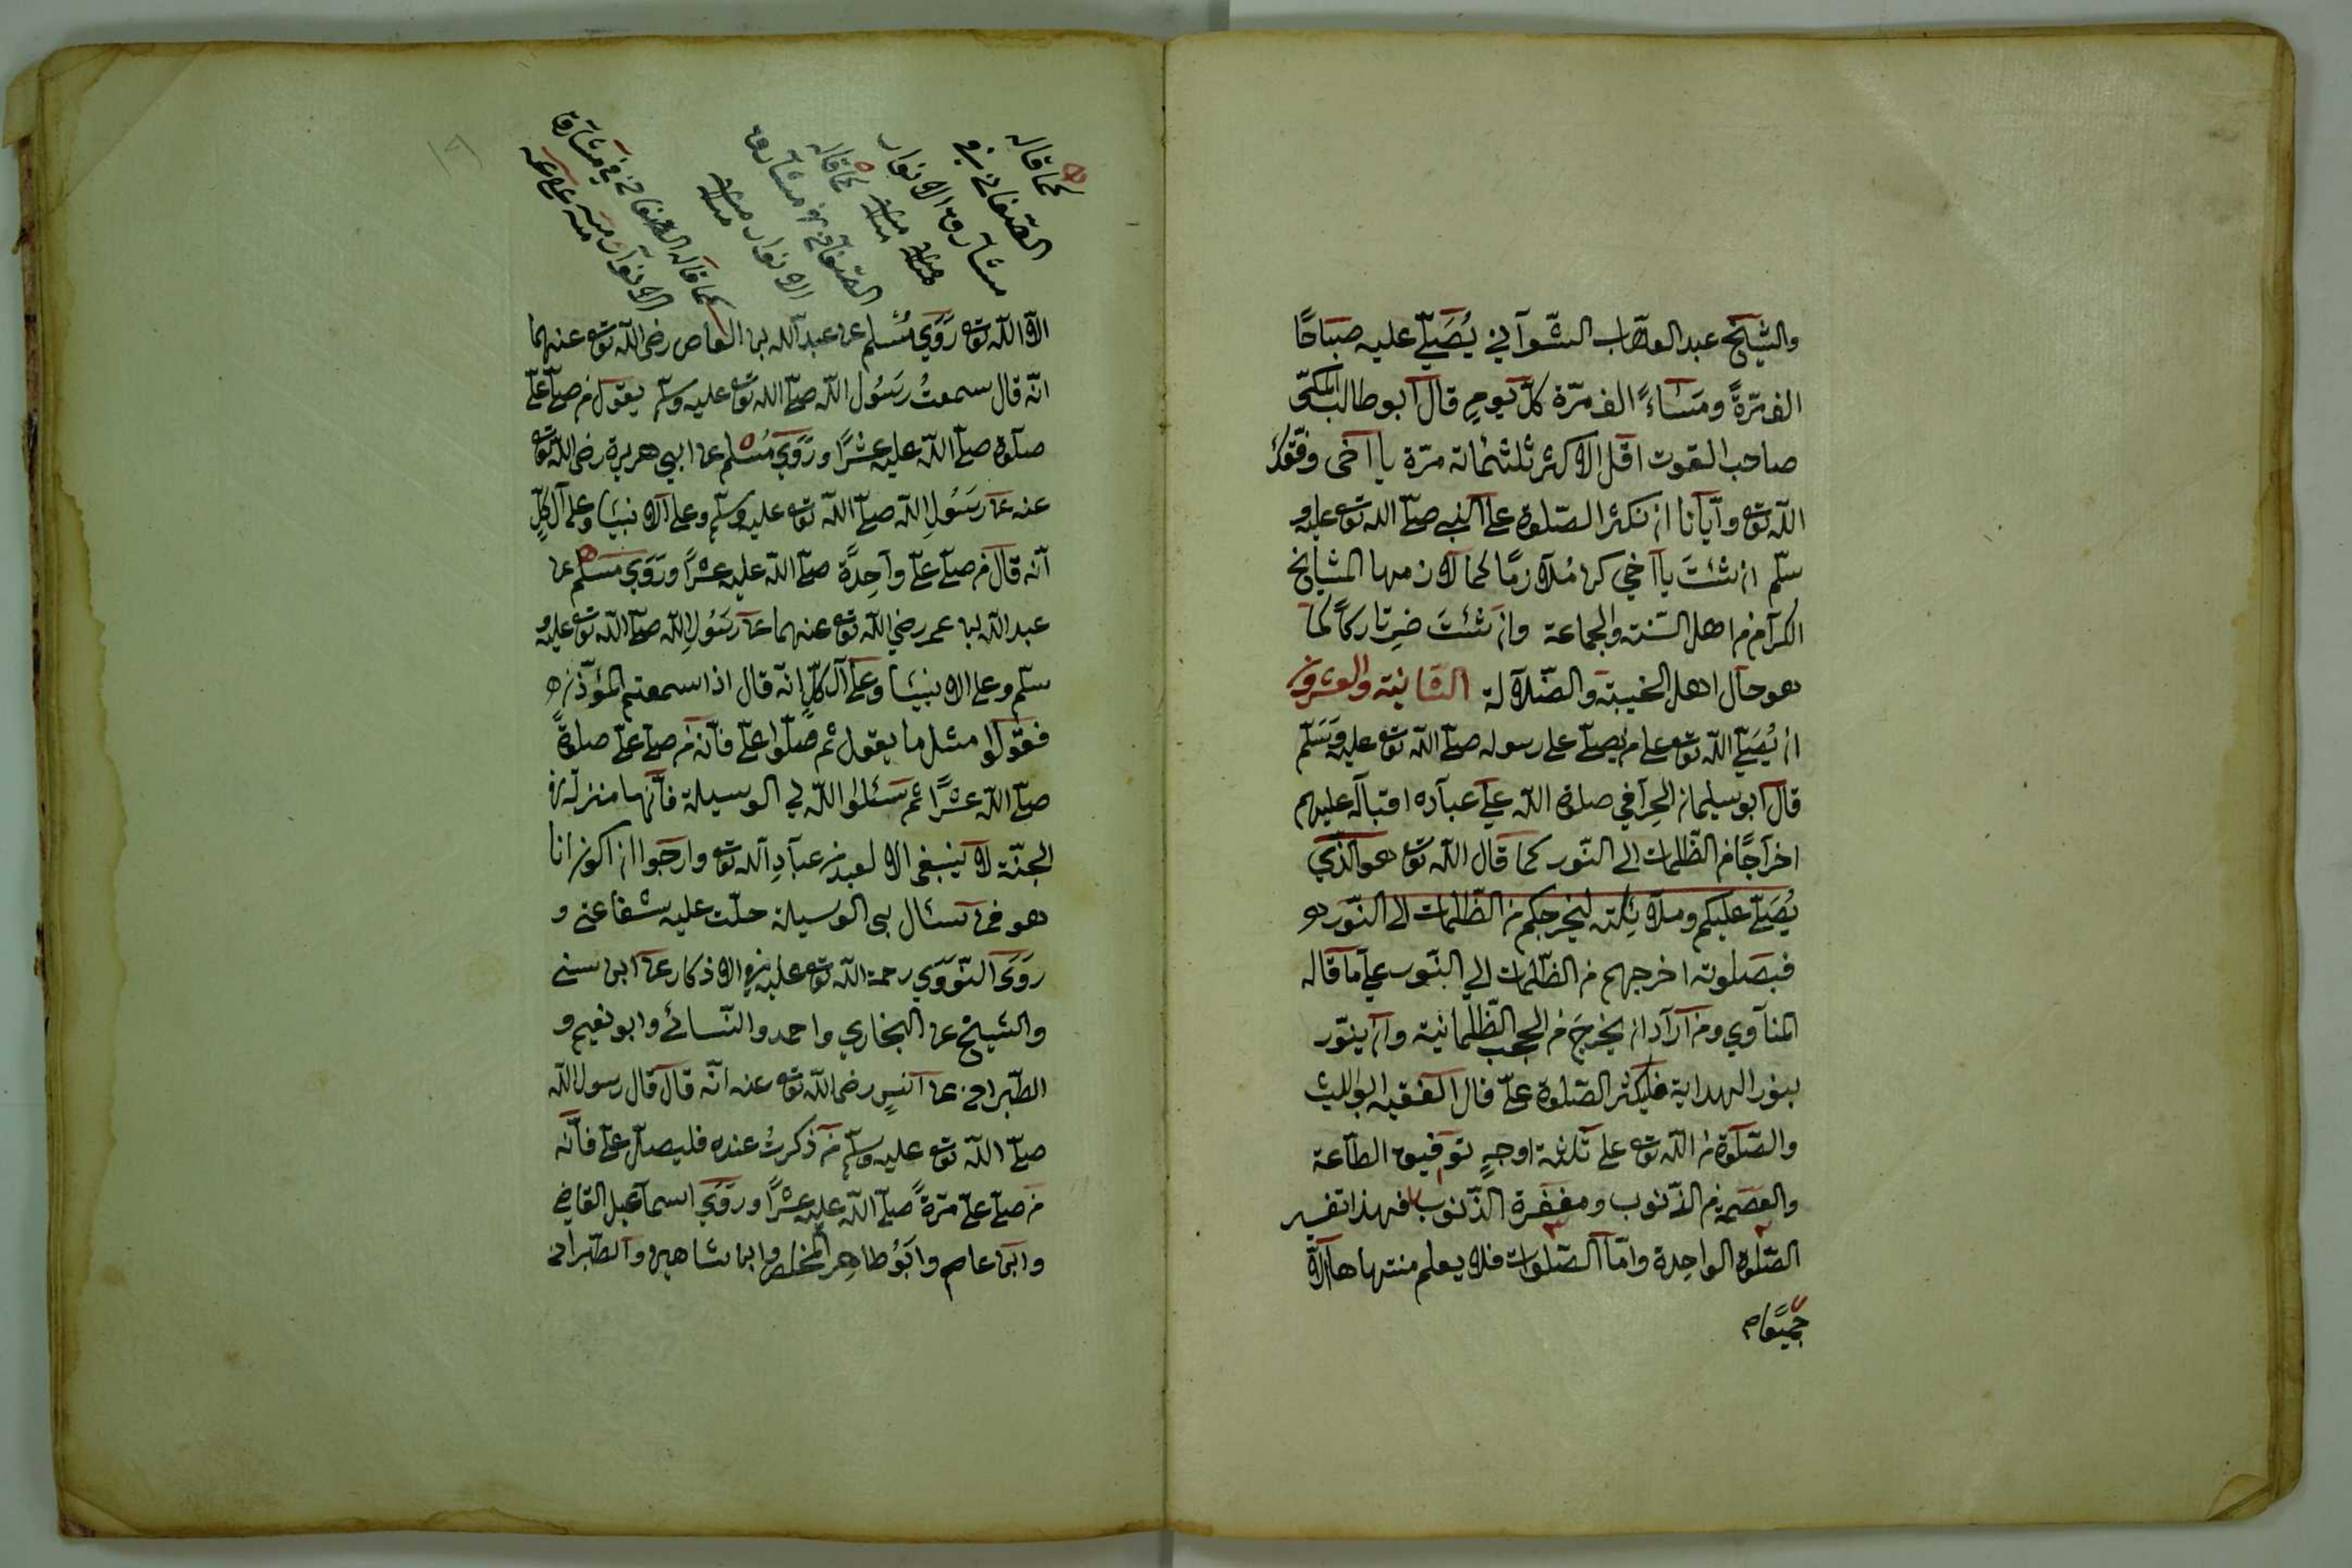 والشيخ عبد الوهاب الشعرآني يُصَلّي عليه صبَاحًا
الف مرّةً ومَسَاءً الف مرّة كلّ يومٍ قال ابو طالب المكّى
صاحب القوت اقل الاكثر ثلثمائة مرّة يا اخى وفّقك
اللّه تعٰ وآيّانا ان نكثر الصّلوة على النّبى صلّى اللّه تعٰ عليه و
سلّم ان شئتَ يا اخي كن مُلازمًا كما لازمها المشايخ
الكرآم من اهل السّنة والجماعة وان شئتَ صِر تاركًا كما
هو حآل اهل الخيبة والضّلالة الثّانية والعشرون
ان يُصَلّي اللّه تعٰ على من يصلّى على رسوله صلّى اللّه تعٰ عليه وَسَلّم
قال ابو سليمان الحرآفي صلوة اللّه على عبآده اقبآله عليهم
اخرآجًا من الظّلمات الى النّور كما قال اللّه تعٰ هو الّذي
يُصَلّي عليكم وملآئِكته ليخرجكم من الظّلمات الى النّور
فبصلوته اخرجهم من الظّلمات الي النّور على ما قاله
المنآوي ومن ارآد ان يخرجَ من الحجب الظّلمانيّة وان ينوّر
بنور الهداية فليكثر الصّلوة علىّ قال الفقيه ابو الليث
والصّلوة من اللّه تعٰ على ثلثة اوجهٍ توفيق الطّاعة
والعصمة من الذّنوب ومغفرة الذّنوب فهذا تفسير
الصّلوة الواحِدة وامّا الصّلوات فلا يعلم منتهاها الّا
جميعًا م
كما قاله
الصّغاني في
مشارق الانوار
منه
كما قاله
الصّغاني في مشارق
الانوار منه
كما قاله الصّغاني في مشارق
الانوار منه
الّا اللّه تعٰ رَوَي مُسْلم عن عبد اللّه بن العاص رضى اللّه تعٰ عنهما
انّه قال سمعتُ رَسُول اللّه صلّى اللّه تعٰ عليه وسلّم يقول من صلّى علىّ
صلٰوة صلّى اللّه عليه عشرًا ورَوَي مُسْلم عن ابي هريرة رضى اللّه تعٰ
عنه عن رَسُولِ اللّه صلّى اللّه تعٰ عليه وسلّم وعلى الانبيَا وعلى آل كلٍّ
انّه قال من صلّى علىّ وآحِدةً صلّى اللّه عليه عشرًا ورَوَي مُسْلم عن
عبد اللّه بن عمر رضي اللّه تعٰ عنهما عن رَسُولِ اللّه صلّى اللّه تعٰ عليه و
سلّم وعلى الانبيَا وعلى آل كلّ انّه قال اذا سمعتم المؤذّن
فقولوا مثل ما يقول ثم صَلّوا علىّ فانّه من صلّى علىّ صلوةً
صلّى اللّه عشرًا ثم سَئلوا اللّه لي الوسيلة فانّها منزلة في
الجنّة لا ينبغى الا لعبد من عبآدِ اللّه تعٰ وارجوا ان اكون انا
هو فمن سئال لى الوسيلة حلّت عليه شفاعتى و
رَوَىَ النّوَوَي رحمة اللّه تعٰ عليه في الاذكار عن ابن سنى
والشيخ عن البخاري واحمد والنّسائى وابو نعيم و
الطّبرانى عن انسٍ رضى اللّه تعٰ عنه انّه قال قال رسول اللّه
صلّى اللّه تعٰ عليه وسلّم من ذكرتُ عنده فليصل علىّ فانّه
من صلّى علىّ مرّةً صلّى اللّه عليه عشرًا ورَوَي اسمآعيل القاضي
وابن عاصم وابَوُ طاهِر المخلص وابن شاهين والطّبرانى